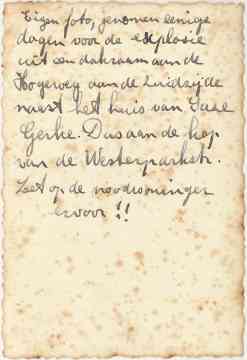 Eigen foto, genomen eenige
dagen voor de explosie
uit een dakraam aan de
Hogeweg aan de Zuidzijde
naast het huis van Suze
Gerke. Dus aan de kop
van de Westerparkstr.
Let op de noodwoningen
ervoor !!